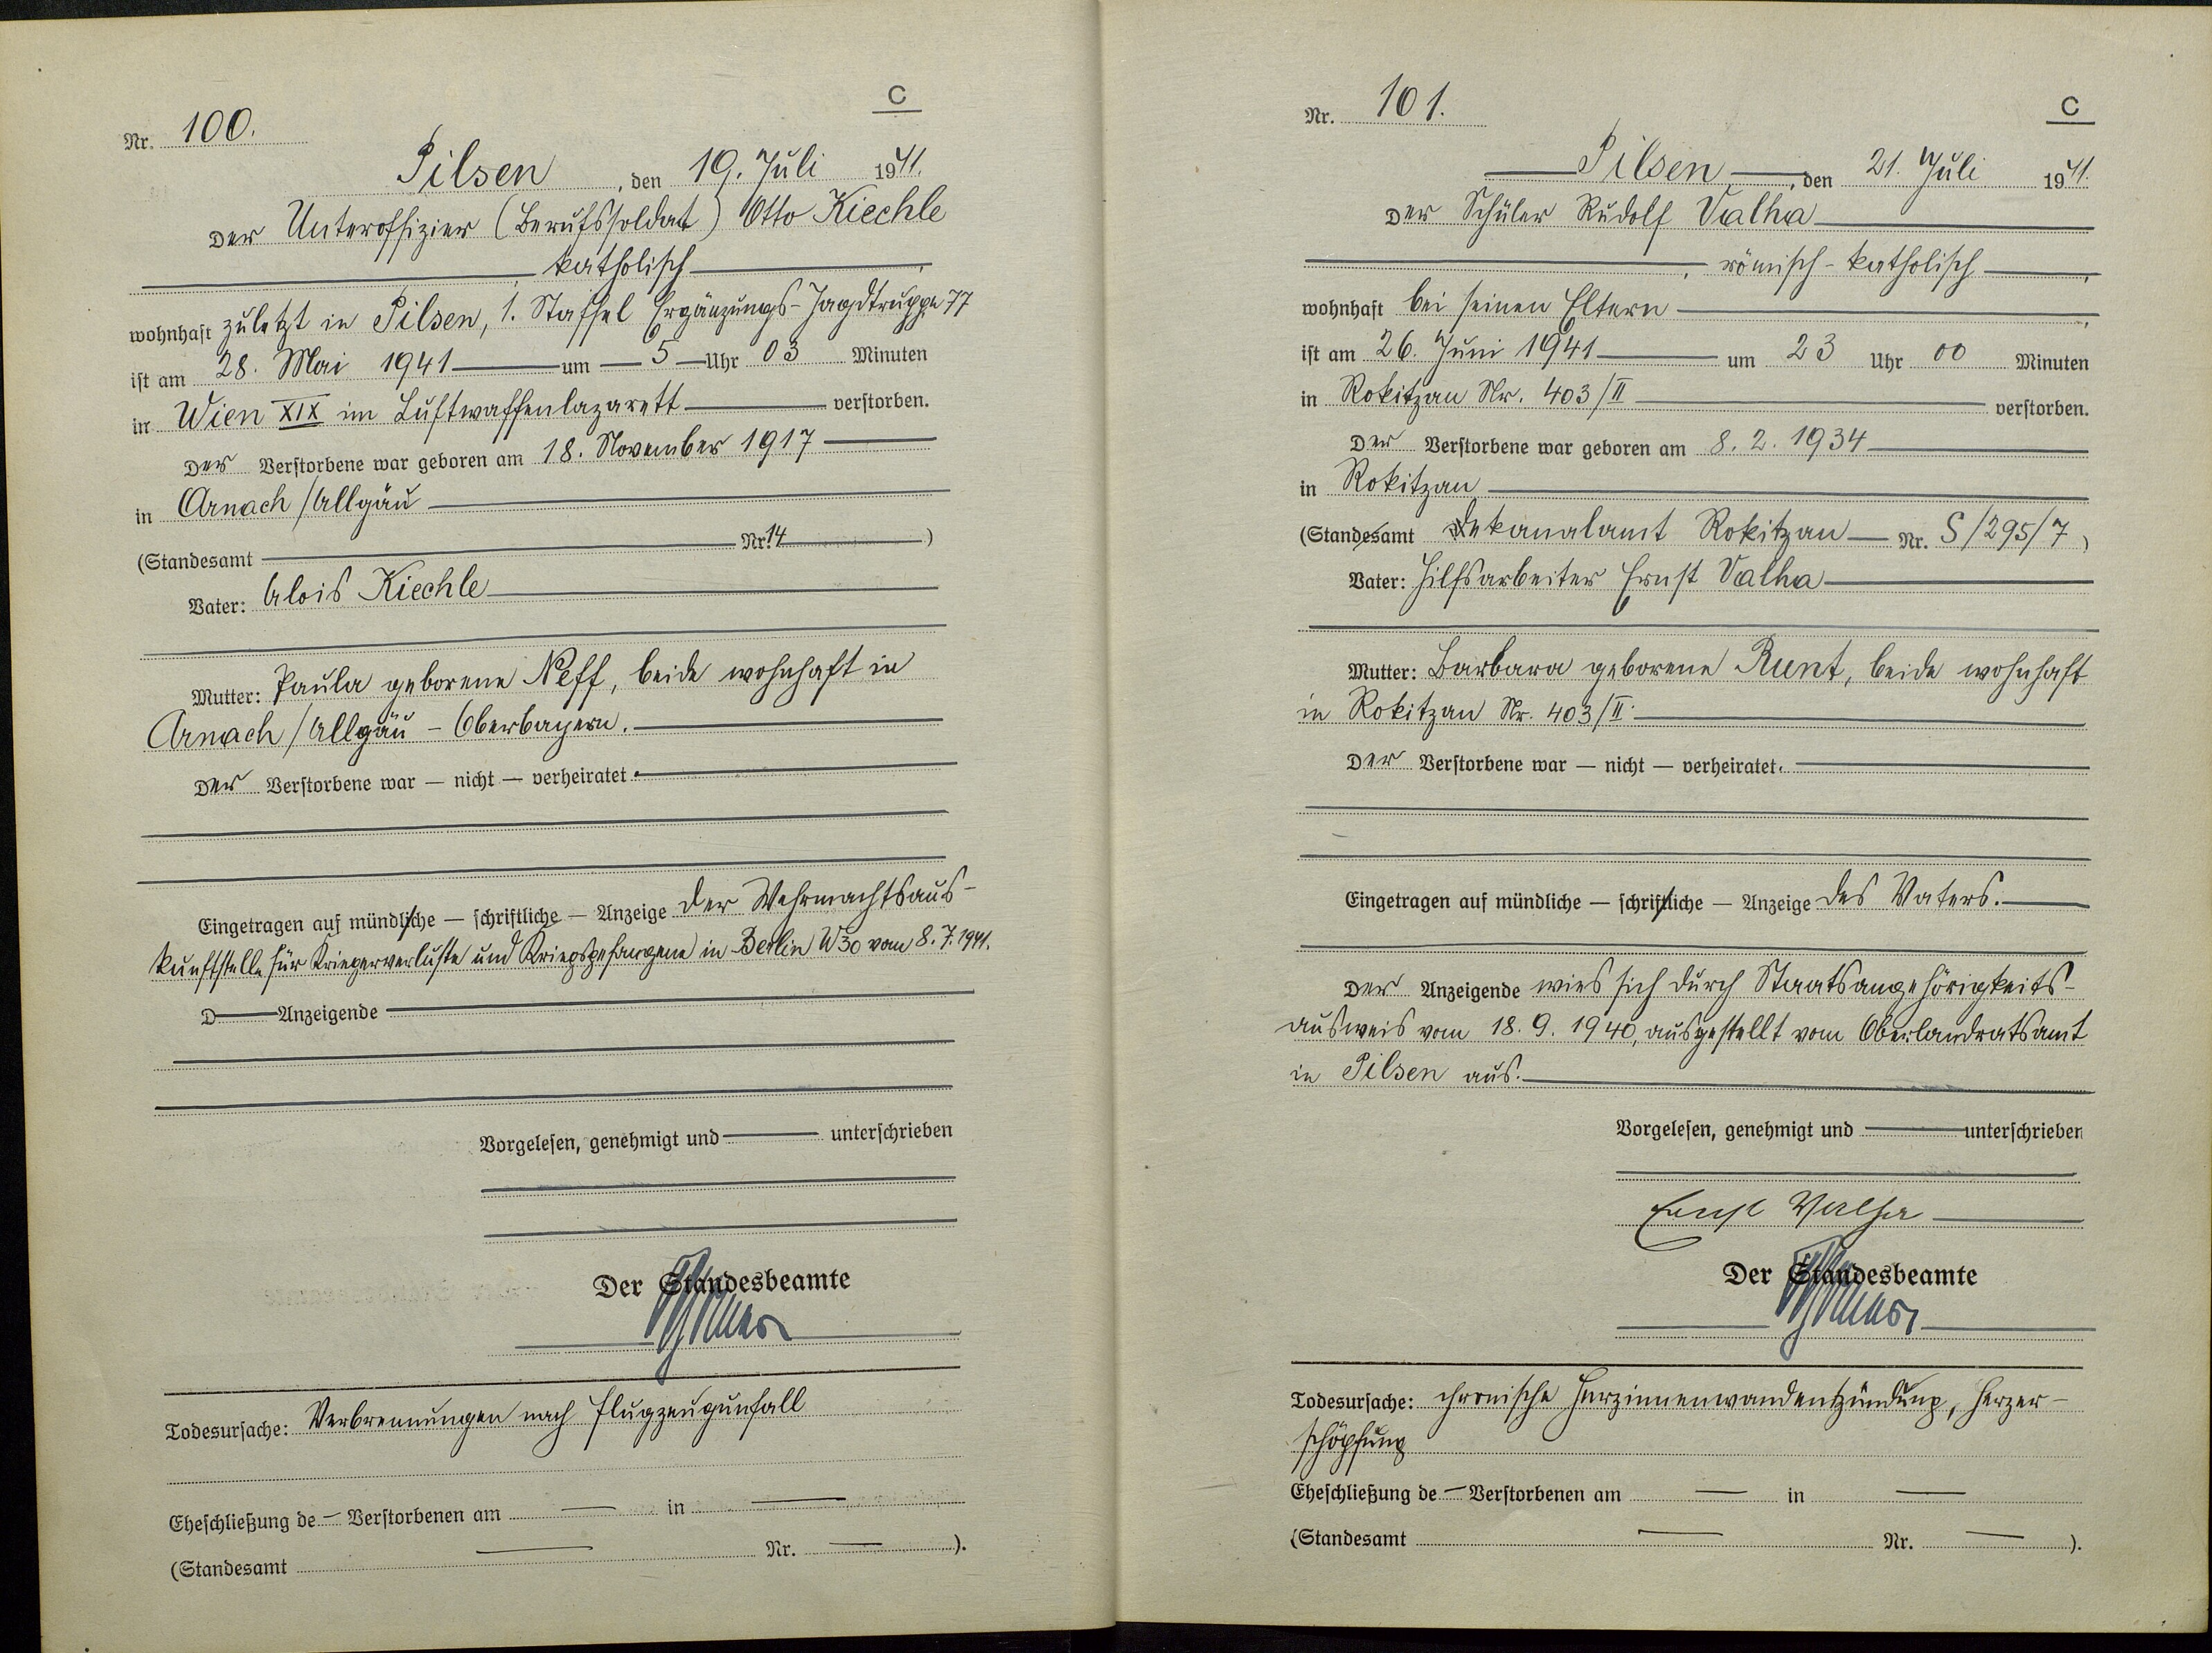 C
Nr. 100.
Pilsen, den 19. Juli 1941.
Der Unteroffizier (Berufssoldat) Otto Kiechle
katholisch,
wohnhaft zuletzt in Pilsen, 1. Staffel Ergänzungs-Jagdtruppe 77
ist am 28. Mai 1941 um 5 Uhr 03 Minuten
in Wien XIX im Luftwaffenlazarett verstorben.
Der Verstorbene war geboren am 18. November 1917
in Arnach/Allgäu
(Standesamt Nr. 14)
Vater: Alois Kiechle
Mutter: Paula geborene Neff, beide wohnhaft in
Arnach/Allgäu - Oberbayern.
Der Verstorbene war — nicht — verheiratet.
Eingetragen auf mündliche — schriftliche — Anzeige der Wehrmachtsaus-
kunftstelle für Kriegerverluste und Kriegsgefangene in Berlin W30 vom 8.7.1941.
D Anzeigende
Vorgelesen, genehmigt und unterschrieben
Der Standesbeamte
Todesursache: Verbrennungen nach Flugzeugunfall
Eheschließung de Verstorbenen am in
(Standesamt Nr. ).
C
Nr. 101.
Pilsen, den 21. Juli 1941.
Der Schüler Rudolf Valha
, römisch-katholisch,
wohnhaft bei seinen Eltern,
ist am 26. Juni 1941 um 23 Uhr 00 Minuten
in Rokitzan Nr. 403/II verstorben.
Der Verstorbene war geboren am 8.2.1934
in Rokitzan
(Standesamt Dekanalamt Rokitzan Nr. S/295/7)
Vater: Hilfsarbeiter Ernst Valha
Mutter: Barbara geborene Runt, beide wohnhaft
in Rokitzan Nr. 403/II.
Der Verstorbene war — nicht — verheiratet.
Eingetragen auf mündliche — schriftliche — Anzeige des Vaters.
Der Anzeigende wies sich durch Staatsangehörigkeits-
ausweis vom 18.9.1940, ausgestellt vom Oberlandratsamt
in Pilsen aus.
Vorgelesen, genehmigt und unterschrieben
Ernst Valha
Der Standesbeamte
Todesursache: chronische Herzinnenwandentzündung, Herzer-
schöpfung
Eheschließung de Verstorbenen am in
(Standesamt Nr. ).